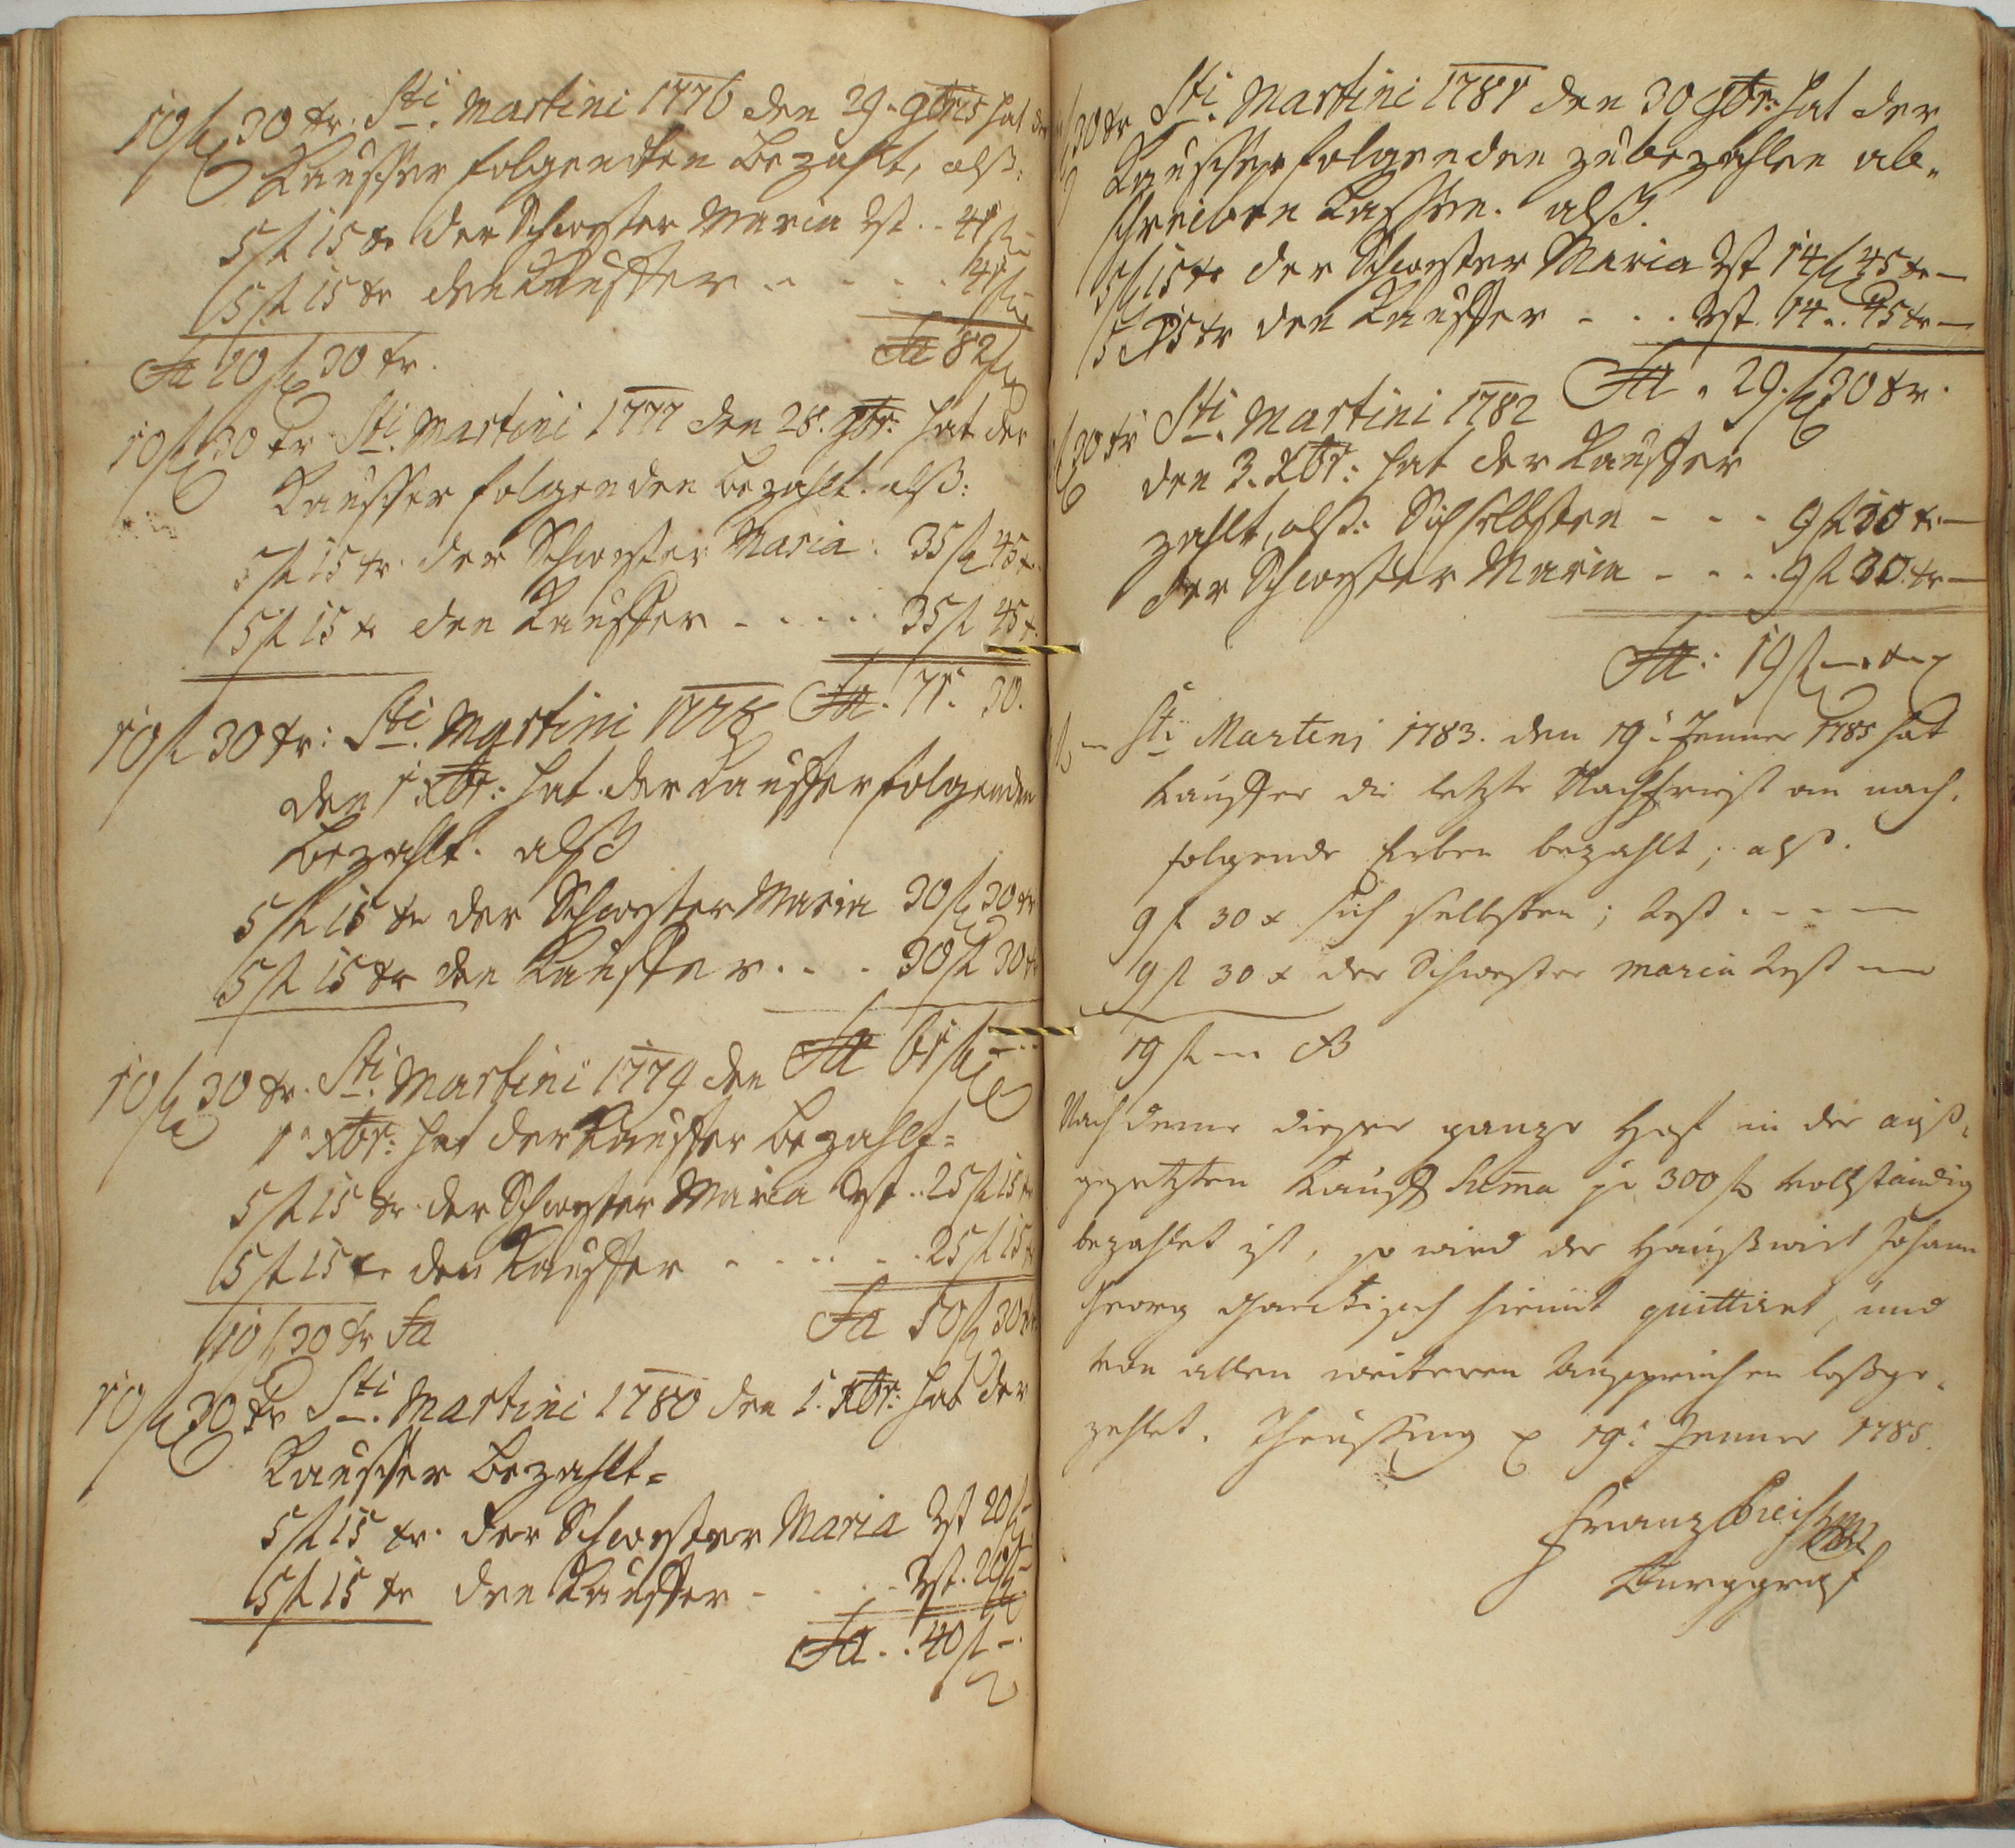 10 fl 30 kr. Sti. Martini 1776 den 29. 9bris hat der
Kauffer folgenden bezahlt, alß:
5 fl 15 kr der Schwester Maria Rst. 41 fl
5 fl 15 kr den Kauffer . . . . 41 fl
Sa 10 fl 30 kr. Sa 82 fl
10 fl 30 kr Sti. Martini 1777 den 28. 9br: hat der
Kauffer folgenden bezahlt. alß:
5 fl 15 kr. der Schwester Maria: 35 fl 45 kr
5 fl 15 kr den Kauffer - . . . . 35 fl 45 kr
Sa. 71. 30.
10 fl 30 kr: Sti. Martini 1778
den 1 Xbr: hat der Kauffer folgenden
bezahlt. alß
5 fl 15 kr der Schwester Maria 30 fl 30 kr
5 fl 15 kr den Kauffer . . . 30 fl 30 kr
Sa 61 fl
10 fl 30 kr. Sti. Martini 1779 den
1. Xbr: hat der Kauffer bezahlt=
5 fl 15 kr. der Schwester Maria Rst. 25 fl 15 kr
5 fl 15 kr den Kauffer . . . . . 25 fl 15 kr
10 fl 30 kr Sa Sa 50 fl 30 kr
10 fl 30 kr Sti. Martini 1780 den 1. Xbr: hat der
Kauffer bezahlt=
5 fl 15 kr. der Schwester Maria Rst 20 fl -
5 fl 15 kr den Kauffer - . . . Rst. 20 fl -
Sa . . 40 fl -
30 kr Sti. Martini 1781 den 30 9br: hat der
Kauffer folgenden zu bezahlen ab-
schreiben lassen. alß.
5 fl 15 kr der Schwester Maria Rst 14 fl 45 kr -
5 fl 15 kr den Kauffer - . . Rst. 14 . 45 kr -
Sa . 29. fl 30 kr.
30 kr Sti. Martini 1782
den 3. Xbr: hat der Kauffer
zahlt, alß: Sich selbsten - - - 9 fl 30 kr -
der Schwester Maria - - . . 9 fl 30. kr -
Sa: 19 fl - kr
Sti Marteni 1783. den 19. Jenner 1785 hat
Kauffer die letzte Nachfrist an nach-
folgende Erben bezahlt; alß.
9 fl 30 x sich selbsten; Rest . - - -
9 fl 30 x der Schwester Maria Rest -
19 fl -
Nach deme dieser ganze Hoff in der auß-
gesetzten Kauff Suma pr 300 fl vollständig
bezahlet ist, so wird der Haußwirt Johann
Georg hiemit quittiret, und
von allen weiteren Ansprüchen loßge-
zehlet. Theusing 19. Jenner 1785.
Franz
Burggraf